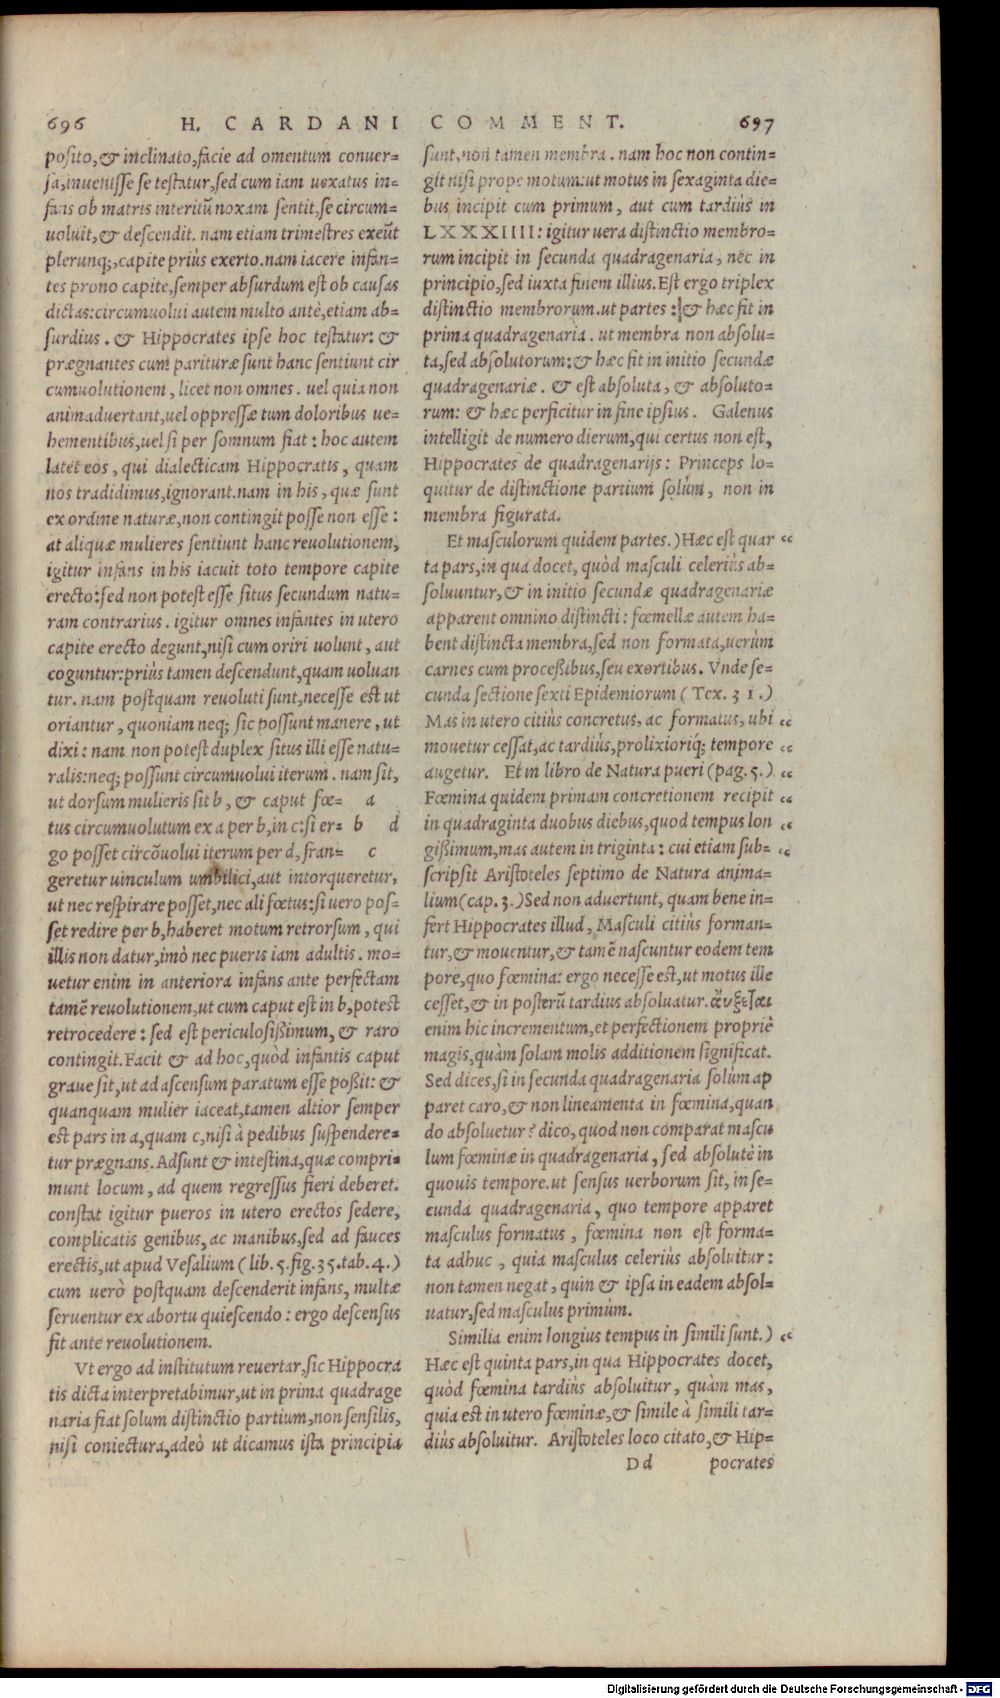 696 H. CARDANI COMMENT. 697
posito,& inclinato,facie ad omentum conuer=
sa,inuenisse se testatur,sed cum iam uexatus in=
fans ob matris interitũ noxam sentit,se circum=
uoluit,& descendit. nam etiam trimestres exeũt
plerunq;,capite priùs exerto.nam iacere infan=
tes prono capite,semper absurdum est ob causas
dictas:circumuolui autem multo antè,etiam ab=
surdius. & Hippocrates ipse hoc testatur: &
prægnantes cum parituræ sunt hanc sentiunt cir
cumuolutionem, licet non omnes. uel quia non
animaduertant,uel oppressæ tum doloribus ue=
hementibus,uel si per somnum fiat: hoc autem
latet eos, qui dialecticam Hippocratis, quam
nos tradidimus,ignorant.nam in his, quæ sunt
ex ordine naturæ,non contingit posse non esse:
at aliquæ mulieres sentiunt hanc reuolutionem,
igitur infans in his iacuit toto tempore capite
erecto:sed non potest esse situs secundum natu=
ram contrarius. igitur omnes infantes in utero
capite erecto degunt,nisi cum oriri uolunt, aut
coguntur:priùs tamen descendunt,quam uoluan
tur. nam postquam reuoluti sunt,necesse est ut
oriantur, quoniam neq; sic possunt manere, ut
dixi: nam non potest duplex situs illi esse natu=
ralis:neq; possunt circumuolui iterum. nam sit,
ut dorsum mulieris sit b, & caput fœ= a
tus circumuolutum ex a per b,in c:si er= b d
go posset circõuolui iterum per d, fran= c
geretur uinculum umbilici,aut intorqueretur,
ut nec respirare posset,nec ali fœtus:si uero pos=
set redire per b,haberet motum retrorsum, qui
illis non datur,imò nec pueris iam adultis. mo=
uetur enim in anteriora infans ante perfectam
tamẽ reuolutionem,ut cum caput est in b,potest
retrocedere: sed est periculosißimum, & raro
contingit.Facit & ad hoc,quòd infantis caput
graue sit,ut ad ascensum paratum esse poßit: &
quanquam mulier iaceat,tamen altior semper
est pars in a,quam c,nisi à pedibus suspendere=
tur prægnans.Adsunt & intestina,quæ compri=
munt locum, ad quem regressus fieri deberet.
constat igitur pueros in utero erectos sedere,
complicatis genibus, ac manibus,sed ad fauces
erectis,ut apud Vesalium (lib.5.fig.35.tab.4.)
cum uerò postquam descenderit infans, multæ
seruentur ex abortu quiescendo: ergo descensus
fit ante reuolutionem.
Vt ergo ad institutum reuertar,sic Hippocra
tis dicta interpretabimur,ut in prima quadrage
naria fiat solum distinctio partium,non sensilis,
nisi coniectura,adeò ut dicamus ista principia
sunt,non tamen membra. nam hoc non contin=
git nisi prope motum:ut motus in sexaginta die=
bus incipit cum primum, aut cum tardiùs in
LXXXIIII: igitur uera distinctio membro=
rum incipit in secunda quadragenaria, nec in
principio,sed iuxta finem illius.Est ergo triplex
distinctio membrorum.ut partes: & hæc fit in
prima quadragenaria. ut membra non absolu=
ta,sed absolutorum:& hæc fit in initio secundæ
quadragenariæ. & est absoluta, & absoluto=
rum: & hæc perficitur in fine ipsius. Galenus
intelligit de numero dierum,qui certus non est,
Hippocrates de quadragenarijs: Princeps lo=
quitur de distinctione partium solùm, non in
membra figurata.
Et masculorum quidem partes.)Hæc est quar “
ta pars,in qua docet, quòd masculi celeriùs ab=
soluuntur,& in initio secundæ quadragenariæ
apparent omnino distincti: fœmellæ autem ha=
bent distincta membra,sed non formata,uerùm
carnes cum proceßibus,seu exortibus. Vnde se=
cunda sectione sexti Epidemiorum (Tex. 31.)
Mas in utero citiùs concretus, ac formatus, ubi “
mouetur cessat,ac tardiùs,prolixioriq; tempore “
augetur. Et in libro de Natura pueri (pag.5.) “
Fœmina quidem primam concretionem recipit “
in quadraginta duobus diebus,quod tempus lon “
gißimum,mas autem in triginta: cui etiam sub= “
scripsit Aristoteles septimo de Natura anima=
lium(cap.3.)Sed non aduertunt, quam bene in=
fert Hippocrates illud, Masculi citiùs forman=
tur,& mouentur,& tamẽ nascuntur eodem tem
pore,quo fœmina: ergo necesse est,ut motus ille
cesset,& in posterũ tardius absoluatur.ἄυξεται
enim hic incrementum,et perfectionem propriè
magis,quàm solam molis additionem significat.
Sed dices,si in secunda quadragenaria solùm ap
paret caro,& non lineamenta in fœmina,quan
do absoluetur? dico,quod non comparat mascu
lum fœminæ in quadragenaria, sed absolutè in
quouis tempore.ut sensus uerborum sit, in se=
cunda quadragenaria, quo tempore apparet
masculus formatus, fœmina non est forma=
ta adhuc, quia masculus celeriùs absoluitur:
non tamen negat, quin & ipsa in eadem absol=
uatur,sed masculus primùm.
Similia enim longius tempus in simili sunt.) “
Hæc est quinta pars,in qua Hippocrates docet,
quòd fœmina tardiùs absoluitur, quàm mas,
quia est in utero fœminæ,& simile à simili tar=
diùs absoluitur. Aristoteles loco citato,& Hip=
Dd pocrates
Digitalisierung gefördert durch die Deutsche Forschungsgemeinschaft - DFG